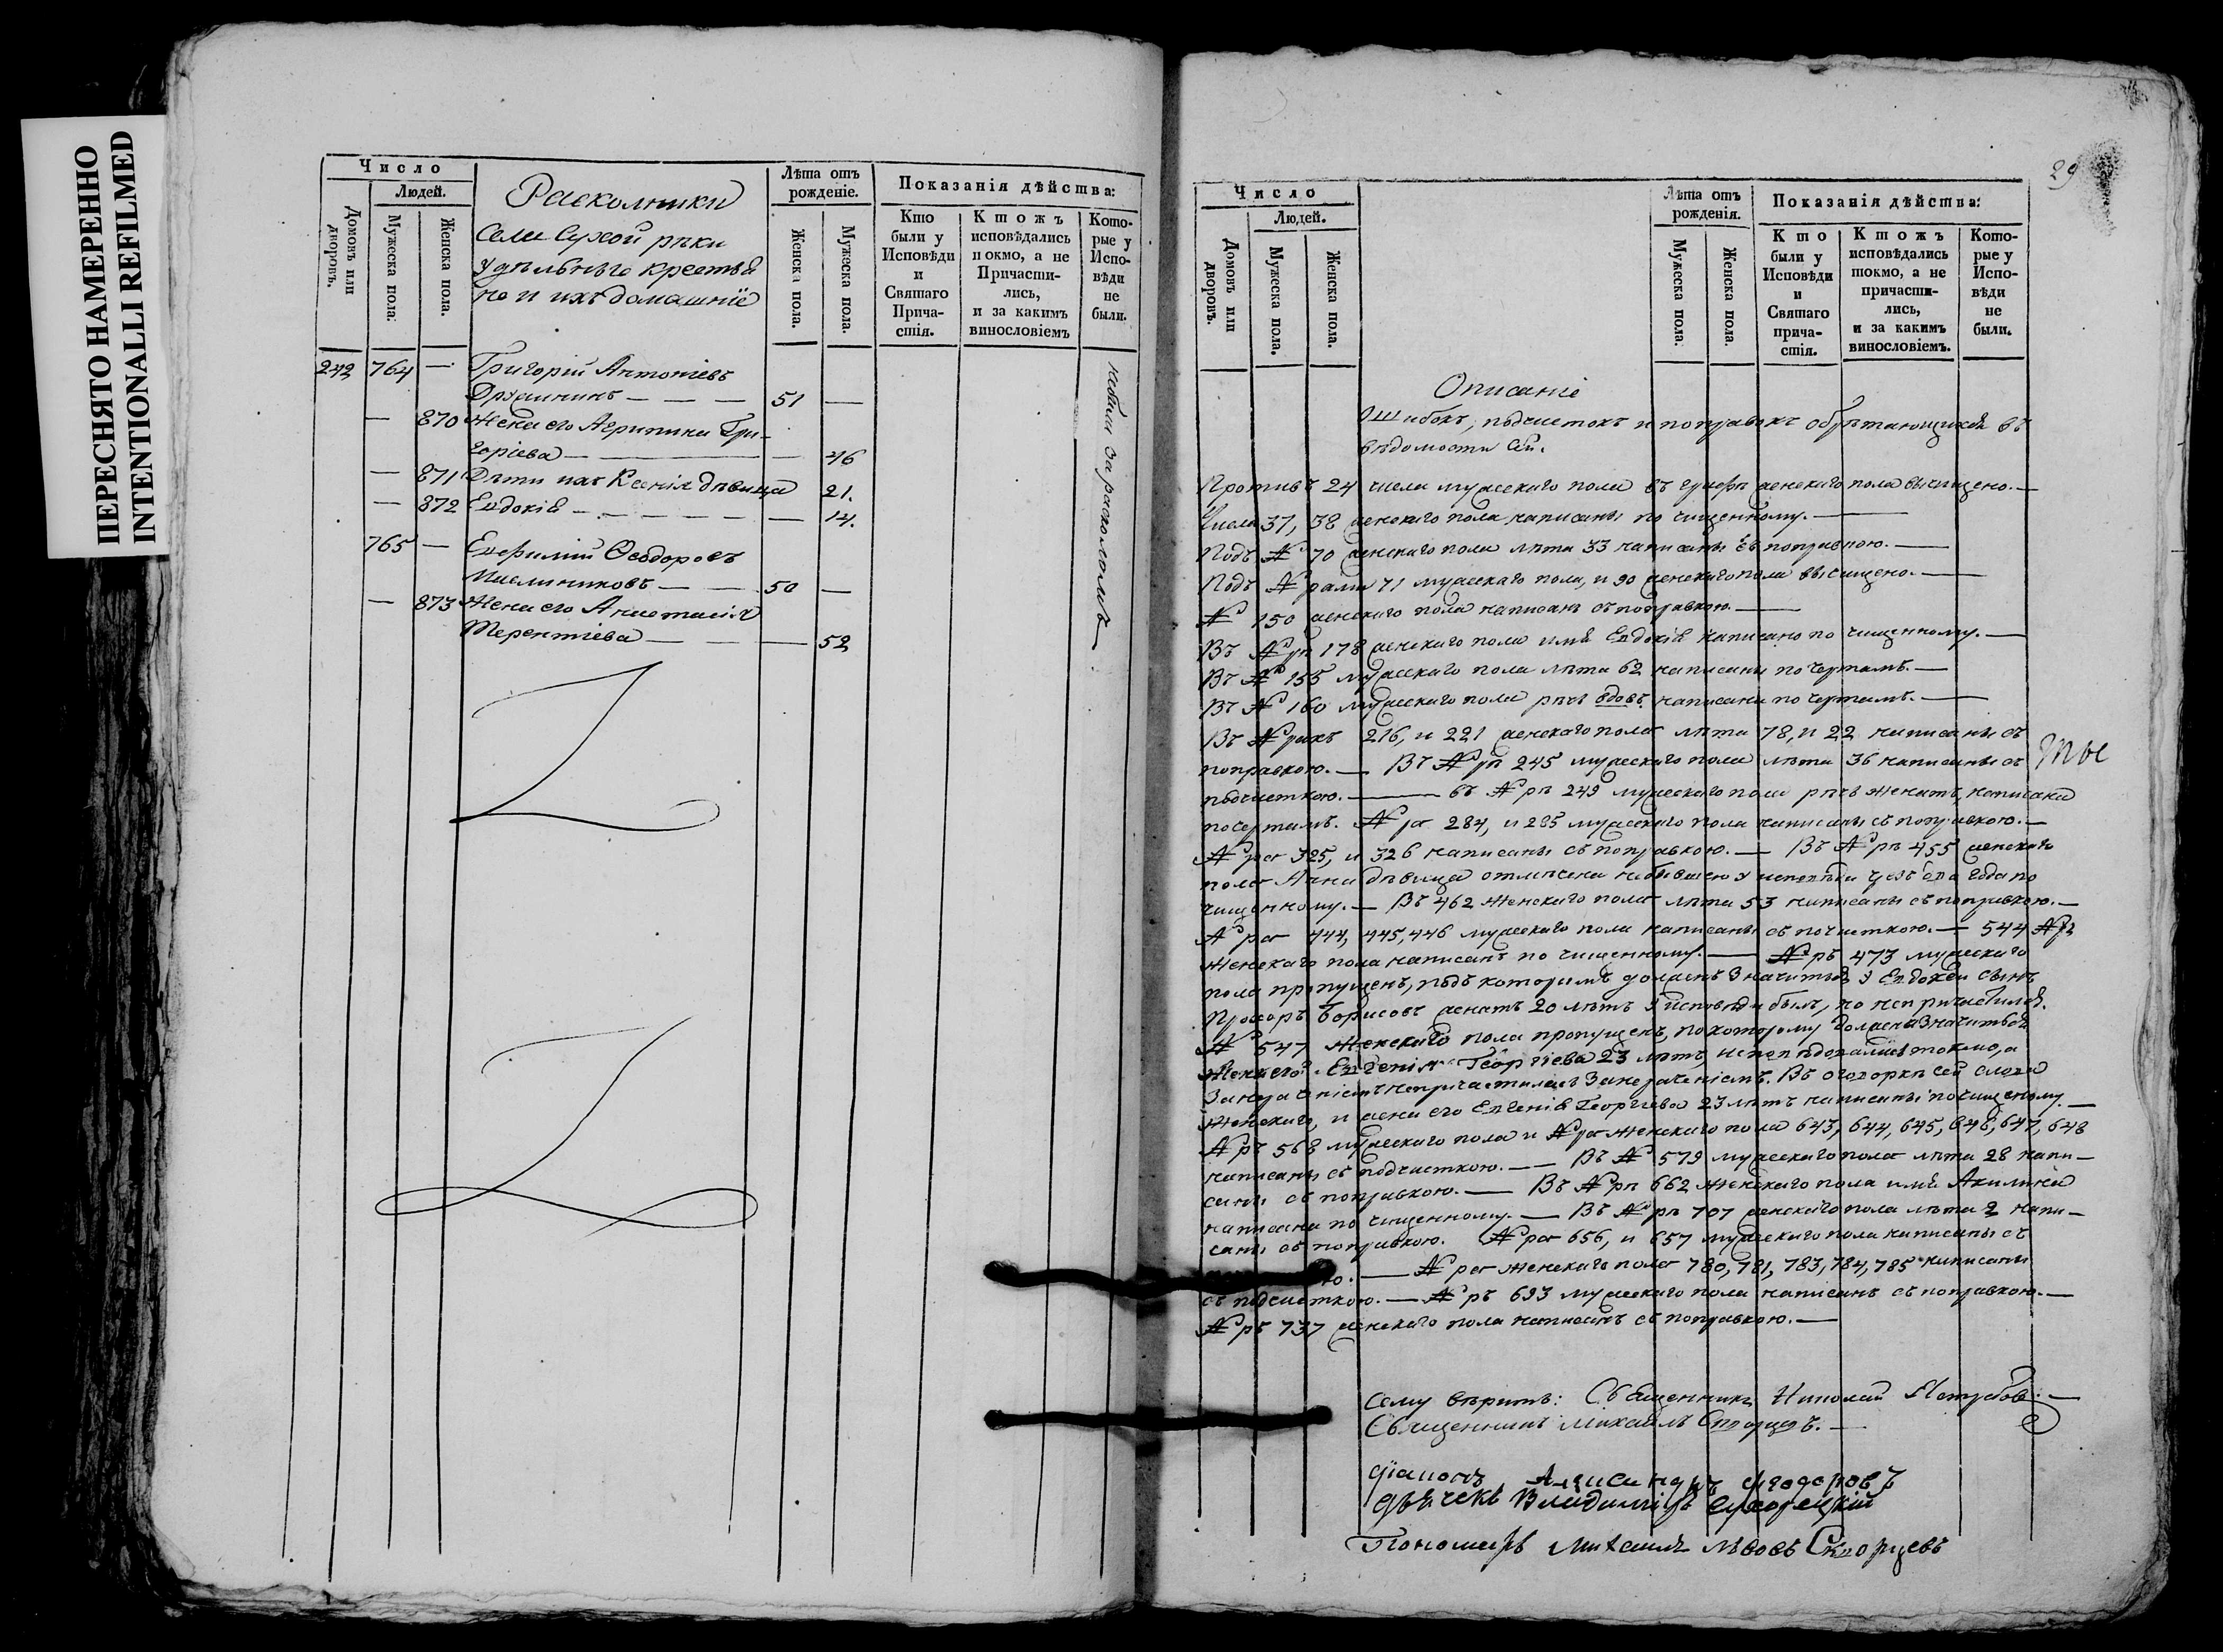 ПЕРЕСНЯТО НАМЕРЕННО
INTENTIONALLI REFILMED
Число
Людей.
Домовъ или дворовъ.
Мужеска пола.
Женска пола.
Раскольники
Села Сухой рѣки
удѣльныѣ крестья
не и ихъ домашніе
Лѣта отъ рожденіе.
Женска пола.
Мужеска пола.
Показанія дѣйства:
Кто были у Исповѣди и Святаго Причастія.
Ктожъ исповѣдались токмо, а не Причастились, и за какимъ винословіемъ
Которые у Исповѣди не были.
242 764 — Григорій Антоніевъ
— — — 51 —
— 870 Жена его Агрипина Гри-
горіева — — 46
— 871 Дѣти ихъ Ксенія дѣвица 21.
— 872 Евдокія — — 14.
765 — Евфимій Ѳеодоровъ
Мыльниковъ — — 50 —
— 873 Жена его Анастасія
Терентіева — — 52
небыли за расколомъ
29
Число
Людей.
Домовъ или дворовъ.
Мужеска пола.
Женска пола.
Лѣта отъ рожденія.
Мужеска пола.
Женска пола.
Показанія дѣйства:
Кто были у Исповѣди и Святаго причастія.
Ктожъ исповѣдались токмо, а не причастились, и за какимъ винословіемъ.
Которые у Исповѣди не были.
Описаніе
Ошибокъ, подчистокъ и поправокъ обрѣтающихся въ
вѣдомости сей.
Противъ 24 числа мужескаго пола въ графѣ женскаго пола вычищено. —
Числа 37, 38 женскаго пола написаны по чищенному. —
Подъ № 70 женскаго пола лѣта 33 написаны съ поправкою. —
Подъ №рами 71 мужескаго пола, и 90 женскаго пола вычищено. —
№ 150 женскаго пола написанъ съ поправкою. —
Въ №рѣ 178 женскаго пола имя Евдокія написано по чищенному. —
Въ № 155 мужескаго пола лѣта 62 написаны по чертамъ. —
Въ № 160 мужескаго пола рѣчь вдовъ написана по чертамъ. —
Въ №рахъ 216, и 221 женскаго пола лѣта 78, и 22 написаны съ
поправкою. — Въ №рѣ 245 мужескаго пола лѣта 36 написаны съ
подчисткою. — въ №рѣ 249 мужескаго пола рѣчь женатъ, написана
по чертамъ. №ра 284, и 285 мужескаго пола написаны съ поправкою. —
№ра 325, и 326 написаны съ поправкою. — Въ №рѣ 455 женскаго
пола Анна дѣвица отмѣчена небывшею у исповѣди два года по
чищенному. — Въ 462 женскаго пола лѣта 53 написаны съ поправкою. —
№ра 444, 445, 446 мужескаго пола написаны съ почисткою. — 544 №ръ
женскаго пола написанъ по чищенному. — №ръ 473 мужескаго
пола пропущенъ, подъ которымъ долженъ значиться у Евдокіи сынъ
Прохоръ Борисовъ женатъ 20 лѣтъ у исповѣди былъ, но непричастился.
№ 547 женскаго пола пропущенъ, по которому должна значиться
Жена его Евгенія Георгіева 23 лѣтъ, исповѣдовалась токмо, а
за нераченіемъ непричастилась за нераченіемъ. Въ оговоркѣ сей слова
женскаго, и жена его Евгенія Георгіева 23 лѣтъ написаны почищенному. —
№ръ 568 мужескаго пола и №ра женскаго пола 643, 644, 645, 646, 647, 648
написаны съ подчисткою. — Въ № 579 мужескаго пола лѣта 28 напи-
саны съ поправкою. — Въ №рѣ 662 женскаго пола имя Акилина
написана по чищенному. — Въ №рѣ 707 женскаго пола лѣта 2 напи-
саны съ поправкою. №ра 656, и 657 мужескаго пола написаны съ
— №ра женскаго пола 780, 781, 783, 784, 785 написаны
съ подчисткою. — №ръ 693 мужескаго пола написанъ съ поправкою. —
№ръ 737 женскаго пола написанъ съ поправкою. —
Сему вѣритъ: Священникъ Николай
Священникъ Михаилъ Скворцовъ. —
Діаконъ Александръ
Дьячекъ Владимиръ Сухорецкій
Пономарь Михаилъ Львовъ Скворцевъ